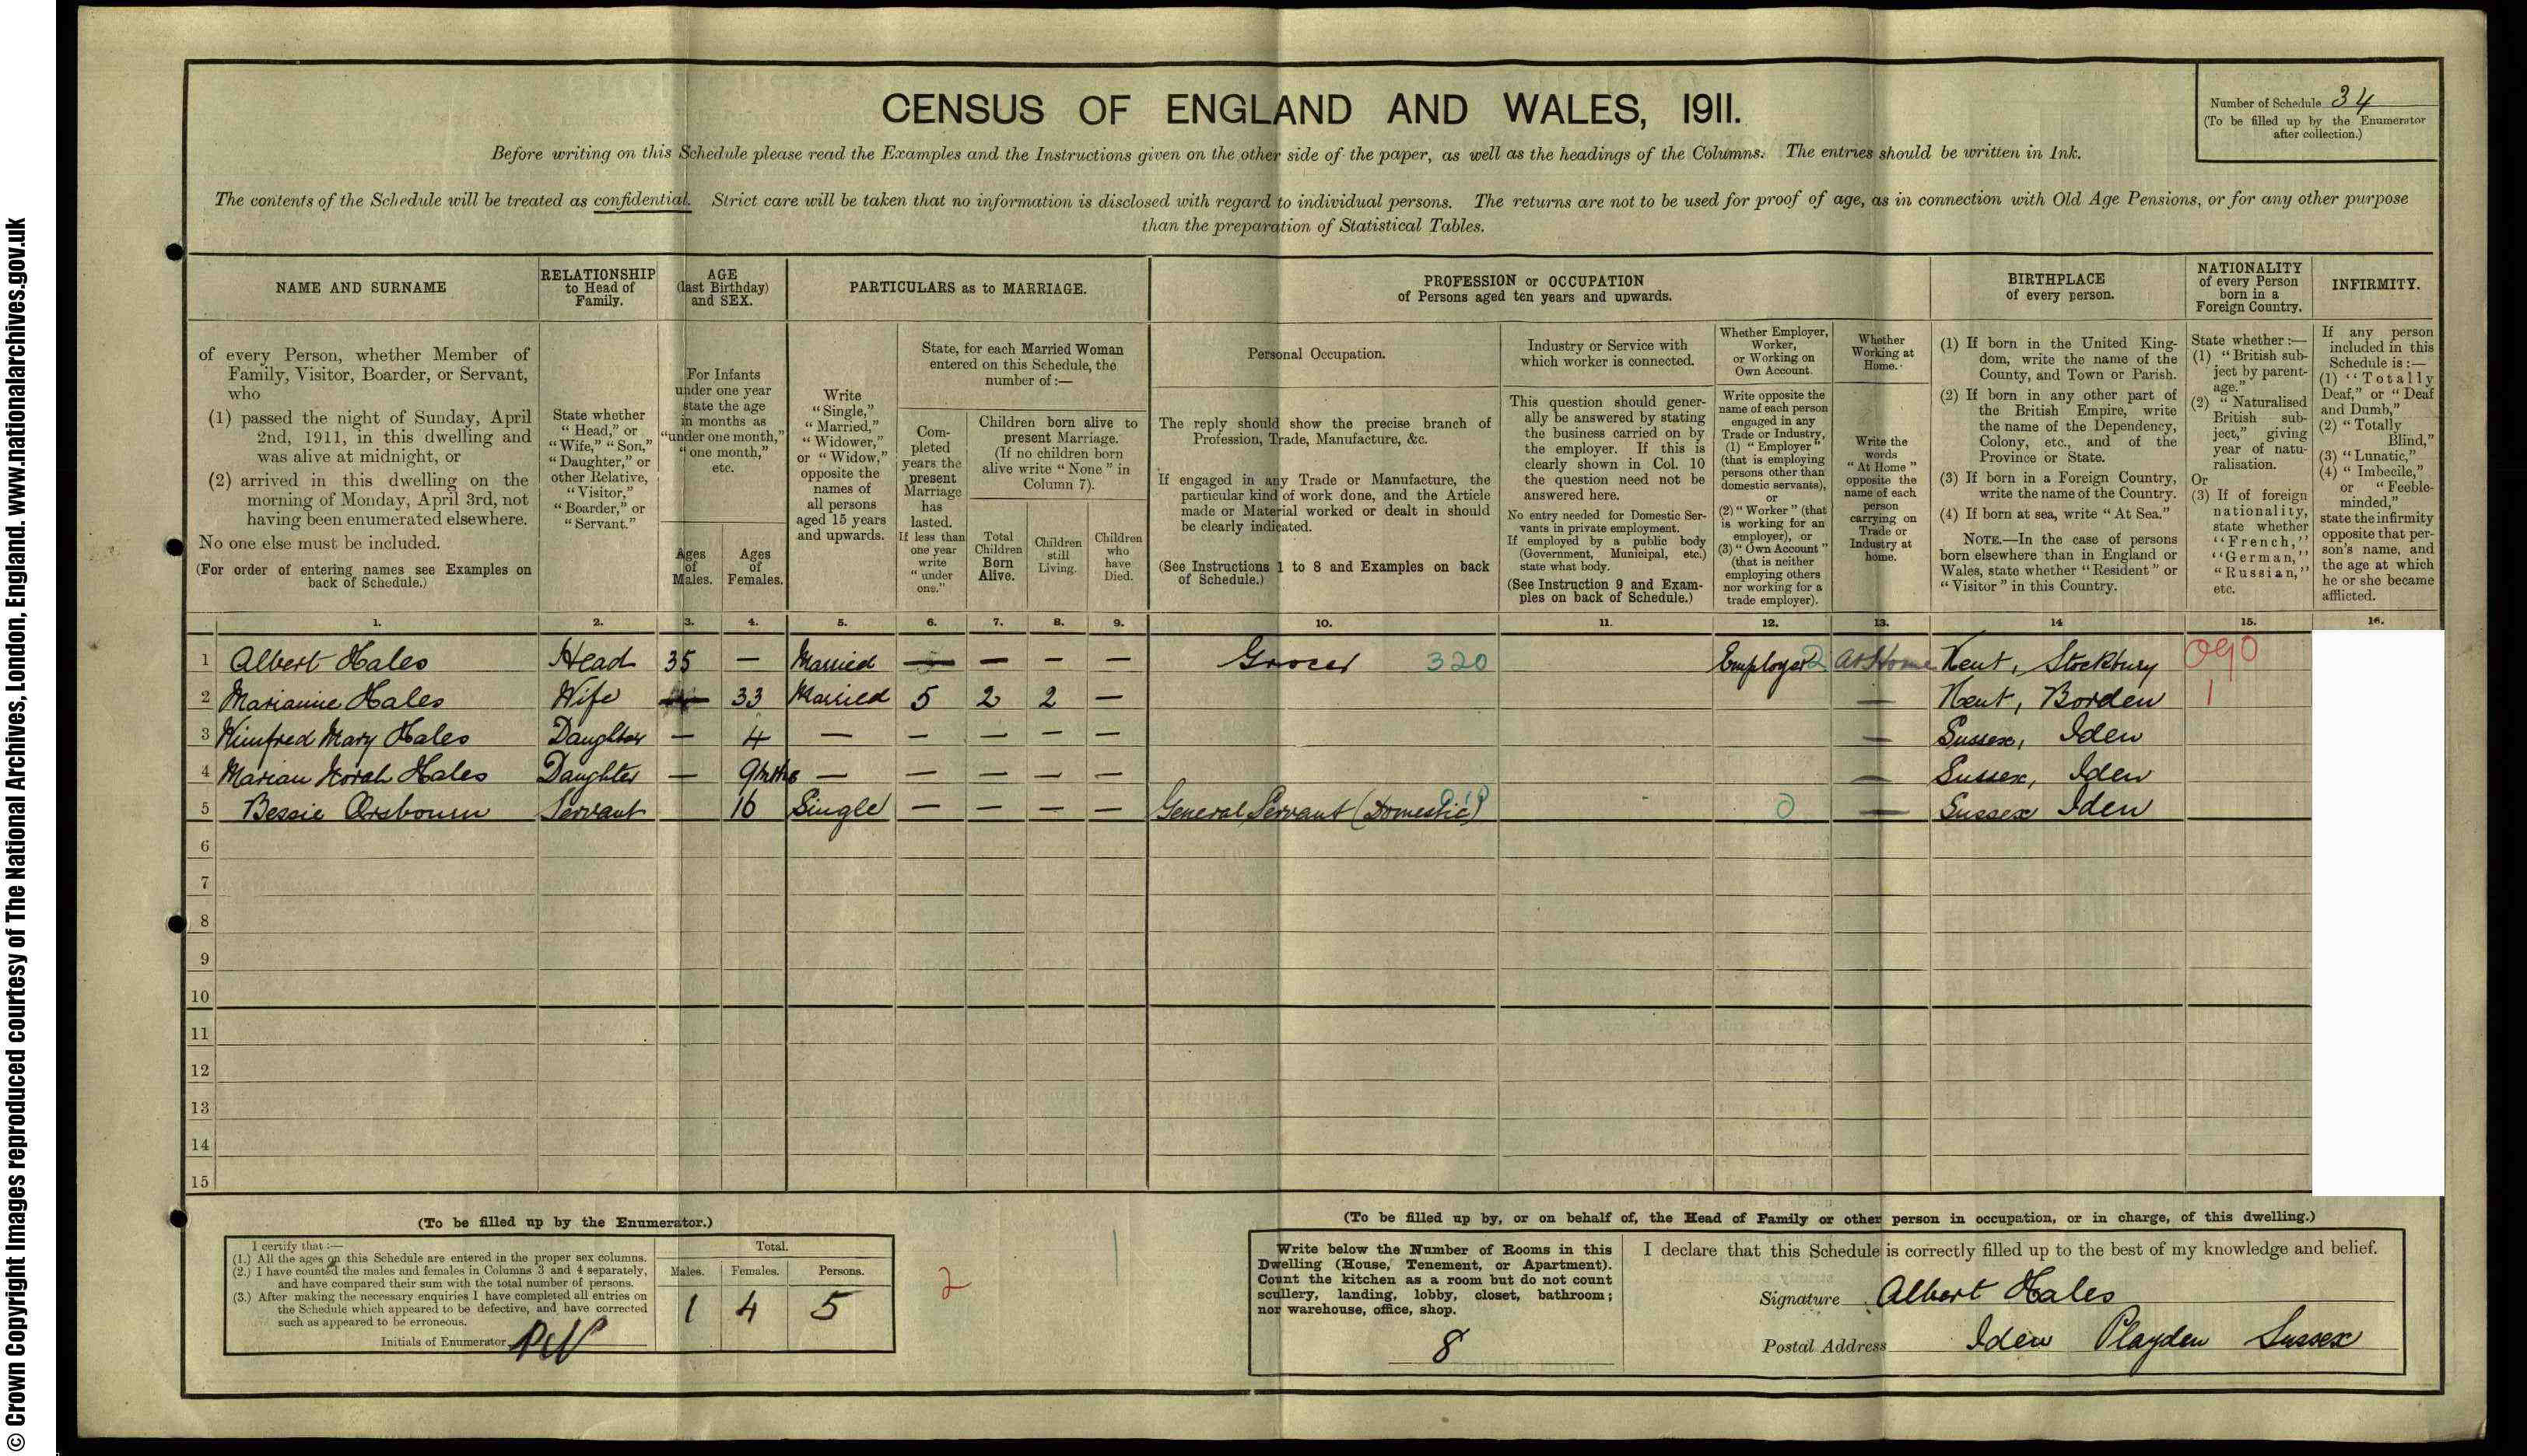 © Crown Copyright Images reproduced courtesy of The National Archives, London, England. www.nationalarchives.gov.uk
CENSUS OF ENGLAND AND WALES, 1911.
Number of Schedule 34
(To be filled up by the Enumerator
after collection.)
Before writing on this Schedule please read the Examples and the Instructions given on the other side of the paper, as well as the headings of the Columns. The entries should be written in Ink.
The contents of the Schedule will be treated as confidential. Strict care will be taken that no information is disclosed with regard to individual persons. The returns are not to be used for proof of age, as in connection with Old Age Pensions, or for any other purpose
than the preparation of Statistical Tables.
NAME AND SURNAME
of every Person, whether Member of
Family, Visitor, Boarder, or Servant,
who
(1) passed the night of Sunday, April
2nd, 1911, in this dwelling and
was alive at midnight, or
(2) arrived in this dwelling on the
morning of Monday, April 3rd, not
having been enumerated elsewhere.
No one else must be included.
(For order of entering names see Examples on
back of Schedule.)
RELATIONSHIP
to Head of
Family.
State whether
"Head," or
"Wife," "Son,"
"Daughter," or
other Relative,
"Visitor,"
"Boarder," or
"Servant."
AGE
(last Birthday)
and SEX.
For Infants
under one year
state the age
in months as
"under one month,"
"one month,"
etc.
Ages
of
Males.
Ages
of
Females.
PARTICULARS as to MARRIAGE.
Write
"Single,"
"Married,"
"Widower,"
or "Widow,"
opposite the
names of
all persons
aged 15 years
and upwards.
State, for each Married Woman
entered on this Schedule, the
number of :—
Com-
pleted
years the
present
Marriage
has
lasted.
If less than
one year
write
"under
one."
Children born alive to
present Marriage.
(If no children born
alive write "None" in
Column 7).
Total
Children
Born
Alive.
Children
still
Living.
Children
who
have
Died.
PROFESSION or OCCUPATION
of Persons aged ten years and upwards.
Personal Occupation.
The reply should show the precise branch of
Profession, Trade, Manufacture, &c.
If engaged in any Trade or Manufacture, the
particular kind of work done, and the Article
made or Material worked or dealt in should
be clearly indicated.
(See Instructions 1 to 8 and Examples on back
of Schedule.)
Industry or Service with
which worker is connected.
This question should gener-
ally be answered by stating
the business carried on by
the employer. If this is
clearly shown in Col. 10
the question need not be
answered here.
No entry needed for Domestic Ser-
vants in private employment.
If employed by a public body
(Government, Municipal, etc.)
state what body.
(See Instruction 9 and Exam-
ples on back of Schedule.)
Whether Employer,
Worker,
or Working on
Own Account.
Write opposite the
name of each person
engaged in any
Trade or Industry,
(1) "Employer"
(that is employing
persons other than
domestic servants),
or
(2) "Worker" (that
is working for an
employer), or
(3) "Own Account"
(that is neither
employing others
nor working for a
trade employer).
Whether
Working at
Home.
Write the
words
"At Home"
opposite the
name of each
person
carrying on
Trade or
Industry at
home.
BIRTHPLACE
of every person.
(1) If born in the United King-
dom, write the name of the
County, and Town or Parish.
(2) If born in any other part of
the British Empire, write
the name of the Dependency,
Colony, etc., and of the
Province or State.
(3) If born in a Foreign Country,
write the name of the Country.
(4) If born at sea, write "At Sea."
NOTE.—In the case of persons
born elsewhere than in England or
Wales, state whether "Resident" or
"Visitor" in this Country.
NATIONALITY
of every Person
born in a
Foreign Country.
State whether :—
(1) "British sub-
ject by parent-
age."
(2) "Naturalised
British sub-
ject," giving
year of natu-
ralisation.
Or
(3) If of foreign
nationality,
state whether
"French,"
"German,"
"Russian,"
etc.
INFIRMITY.
If any person
included in this
Schedule is :—
(1) "Totally
Deaf," or "Deaf
and Dumb,"
(2) "Totally
Blind,"
(3) "Lunatic,"
(4) "Imbecile,"
or "Feeble-
minded,"
state the infirmity
opposite that per-
son's name, and
the age at which
he or she became
afflicted.
1. 2. 3. 4. 5. 6. 7. 8. 9. 10. 11. 12. 13. 14 15. 16.
1 Albert Hales Head 35 — Married — — — — Grocer 320 Employer 2 At Home Kent, Stockbury 090
2 Marianne Hales Wife 33 Married 5 2 2 — — Kent, Borden 1
3 Winifred Mary Hales Daughter — 4 — — — — — — Sussex, Iden
4 Marian Norah Hales Daughter — 9mths — — — — — — Sussex, Iden
5 Bessie Orsbourn Servant 16 Single — — — — General Servant (Domestic) 0 — Sussex Iden
6
7
8
9
10
11
12
13
14
15
(To be filled up by the Enumerator.)
I certify that :—
(1.) All the ages on this Schedule are entered in the proper sex columns.
(2.) I have counted the males and females in Columns 3 and 4 separately,
and have compared their sum with the total number of persons.
(3.) After making the necessary enquiries I have completed all entries on
the Schedule which appeared to be defective, and have corrected
such as appeared to be erroneous.
Initials of Enumerator
Total.
Males. Females. Persons.
1 4 5
2
(To be filled up by, or on behalf of, the Head of Family or other person in occupation, or in charge, of this dwelling.)
Write below the Number of Rooms in this
Dwelling (House, Tenement, or Apartment).
Count the kitchen as a room but do not count
scullery, landing, lobby, closet, bathroom;
nor warehouse, office, shop.
8
I declare that this Schedule is correctly filled up to the best of my knowledge and belief.
Signature Albert Hales
Postal Address Iden Playden Sussex